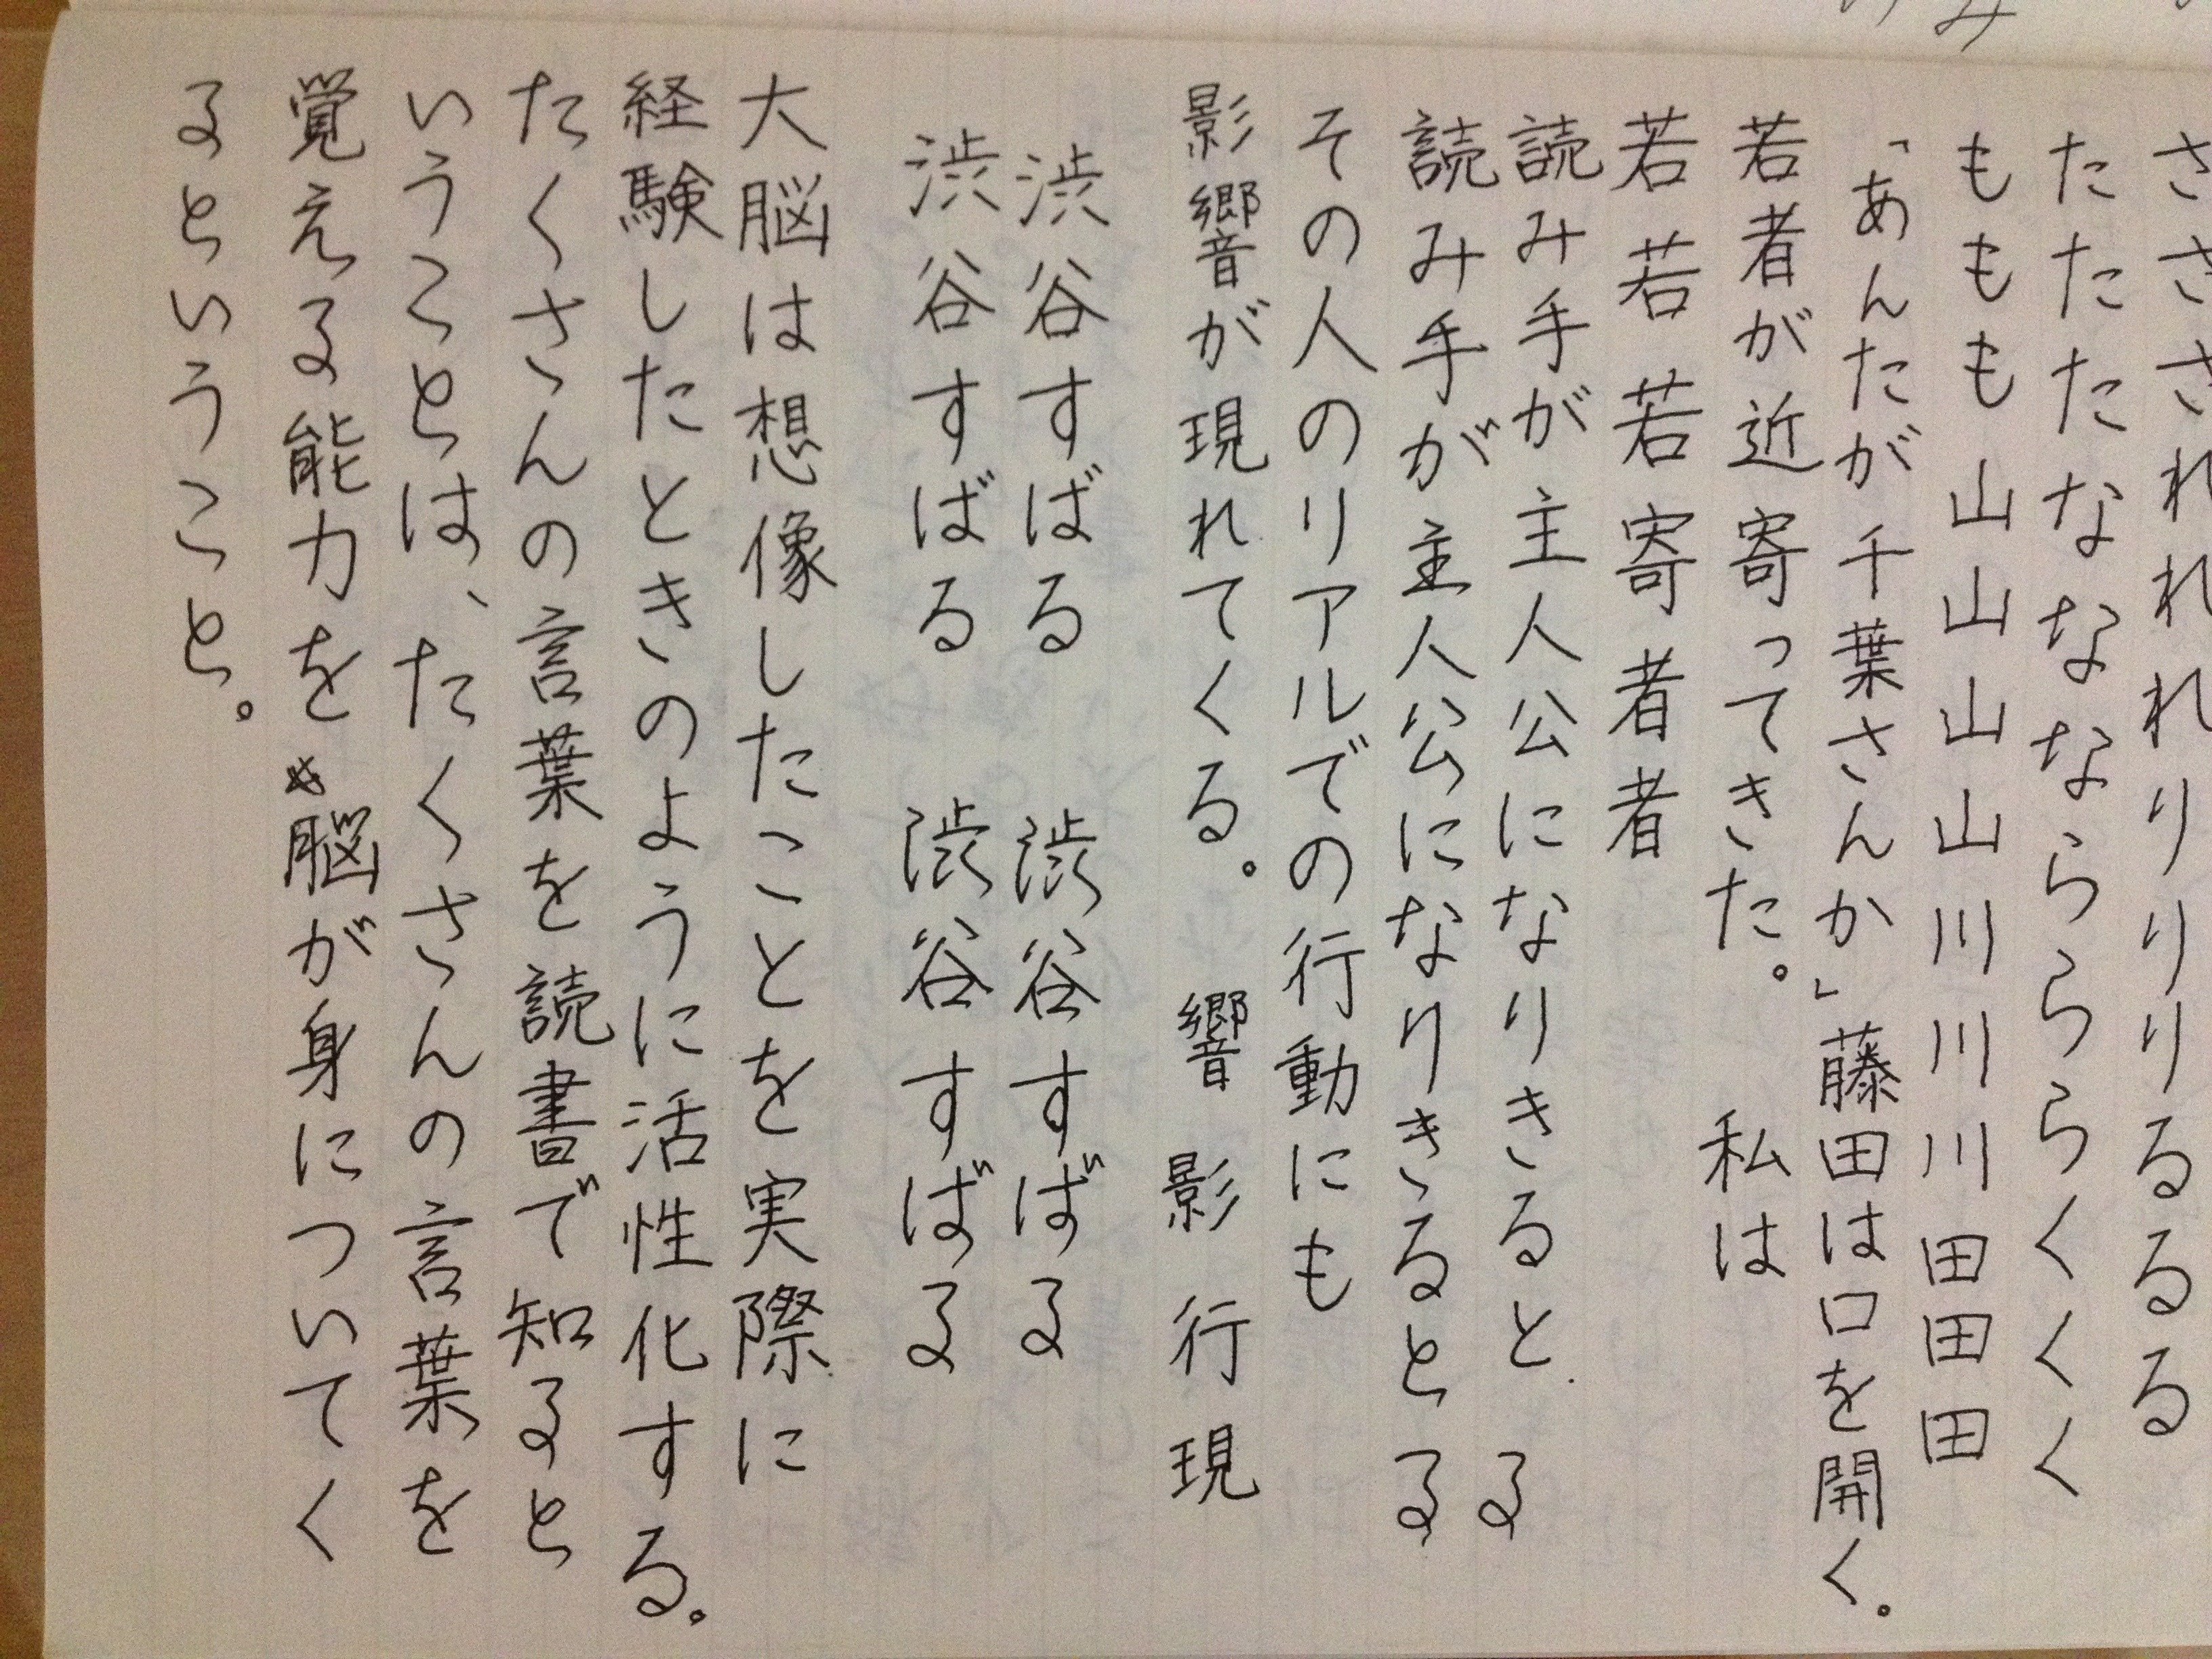 さささされれれりりりるるる
たたたなななららららくくく
ももも山山山山川川川田田田
「あんたが千葉さんか」藤田は口を開く。
若者が近寄ってきた。 私は
若若若寄者者
読み手が主人公になりきると る
読み手が主人公になりきると る
その人のリアルでの行動にも
影響が現れてくる。 響 影 行 現
渋谷すばる 渋谷すばる
渋谷すばる 渋谷すばる
大脳は想像したことを実際に
経験したときのように活性化する。
たくさんの言葉を読書で知ると
いうことは、たくさんの言葉を
覚える能力を脳が身についてく
るということ。